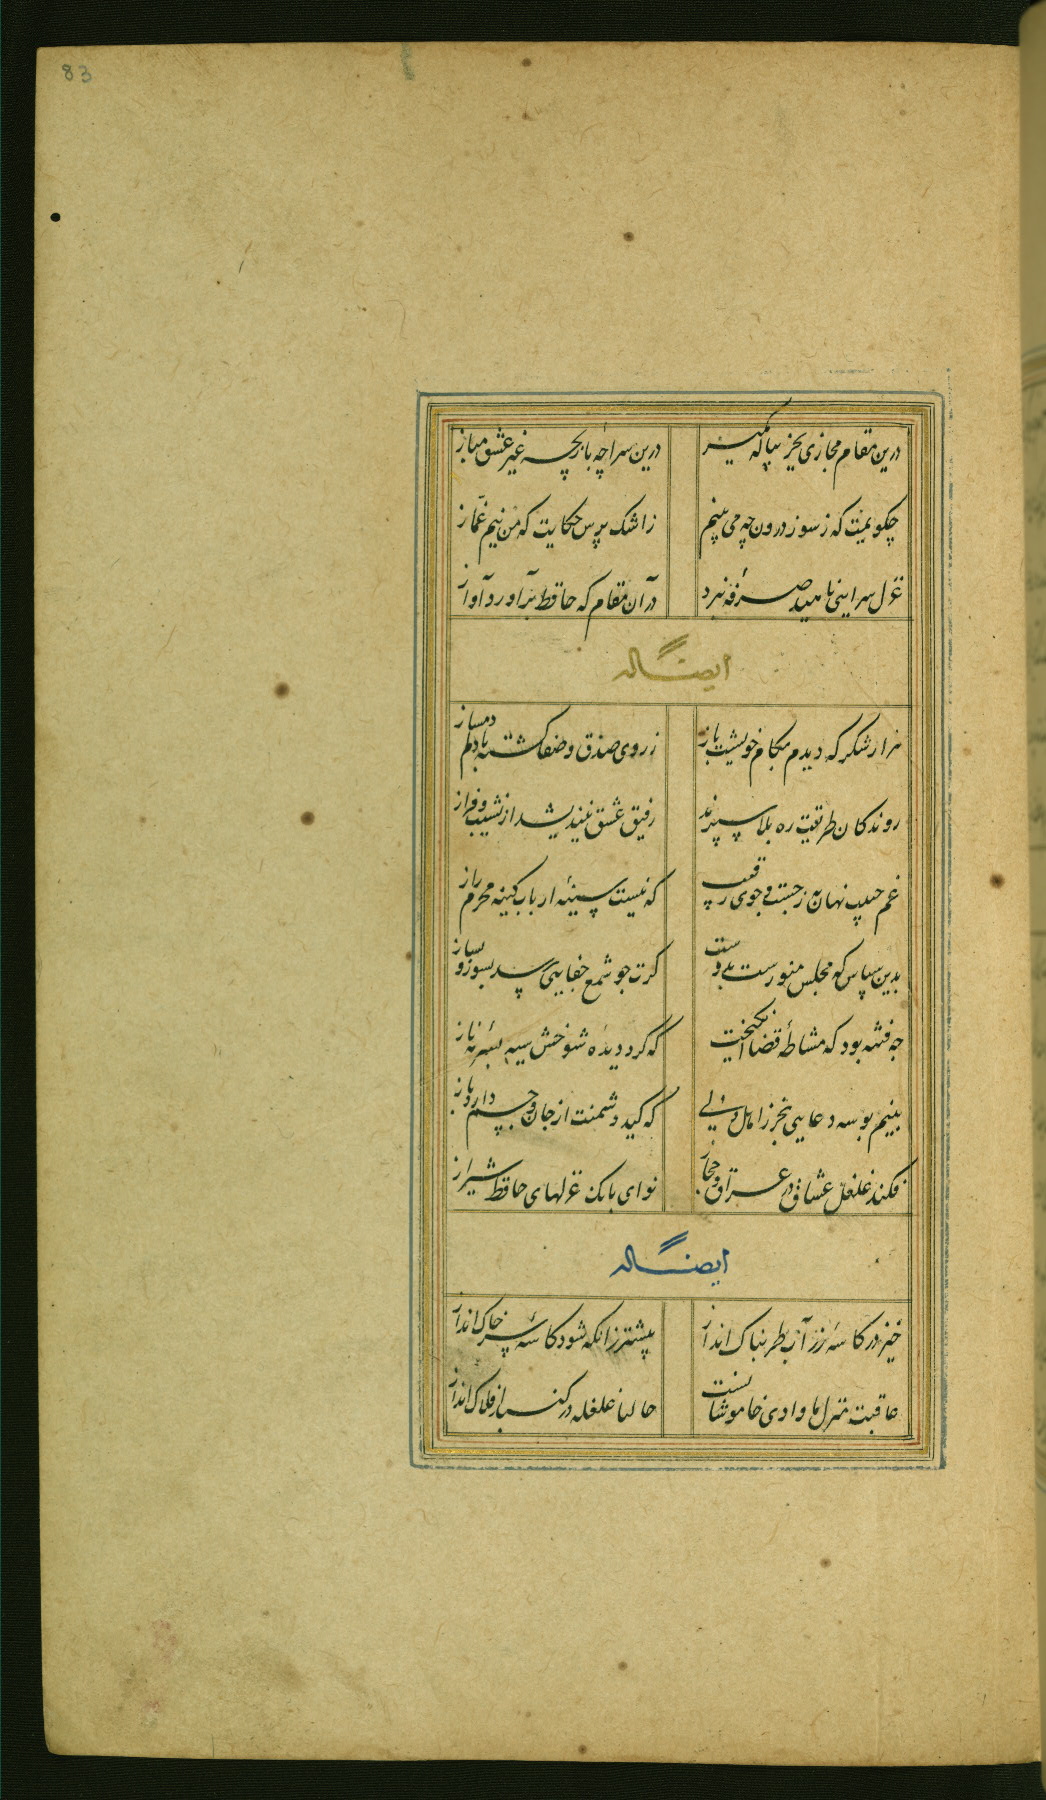 83
درین مقام مجازی بجز پیاله مگیر درین سراچه بازیچه غیر عشق مباز
چگویمت که ز سوز درون چه می بینم ز اشک پرس حکایت که من نیم غماز
غزل سرایی ناهید صرفه نبرد در آن مقام که حافظ برآورد آواز
ایضاً له
هزار شکر که دیدم بکام خویشت باز ز روی صدق و صفا گشته با دلم دمساز
روندکان طریقت ره بلا سپرند رفیق عشق نیندیشد از نشیب و فراز
غم حبیب نهان به ز جست و جوی رقیب که نیست سینه ارباب کینه محرم راز
بدین سپاس که مجلس منورست بدوست کرت چو شمع جفایی رسد بسوز و بساز
چه فتنه بود که مشاطه قضا انکیخت که کرد دیده شوخش سیه بسرمه ناز
بنیم بوسه دعایی بخر ز اهل دلی که کید دشمنت از جان و جسم دارد باز
فکند غلغل عشاق در عراق و حجاز نوای بانک غزلهای حافظ شیراز
ایضاً له
خیز در کاسه زر آب طربناک انداز پیشتر زانکه شود کاسه سر خاک انداز
عاقبت منزل ما وادی خاموشانست حالیا غلغله در کنبد افلاک انداز